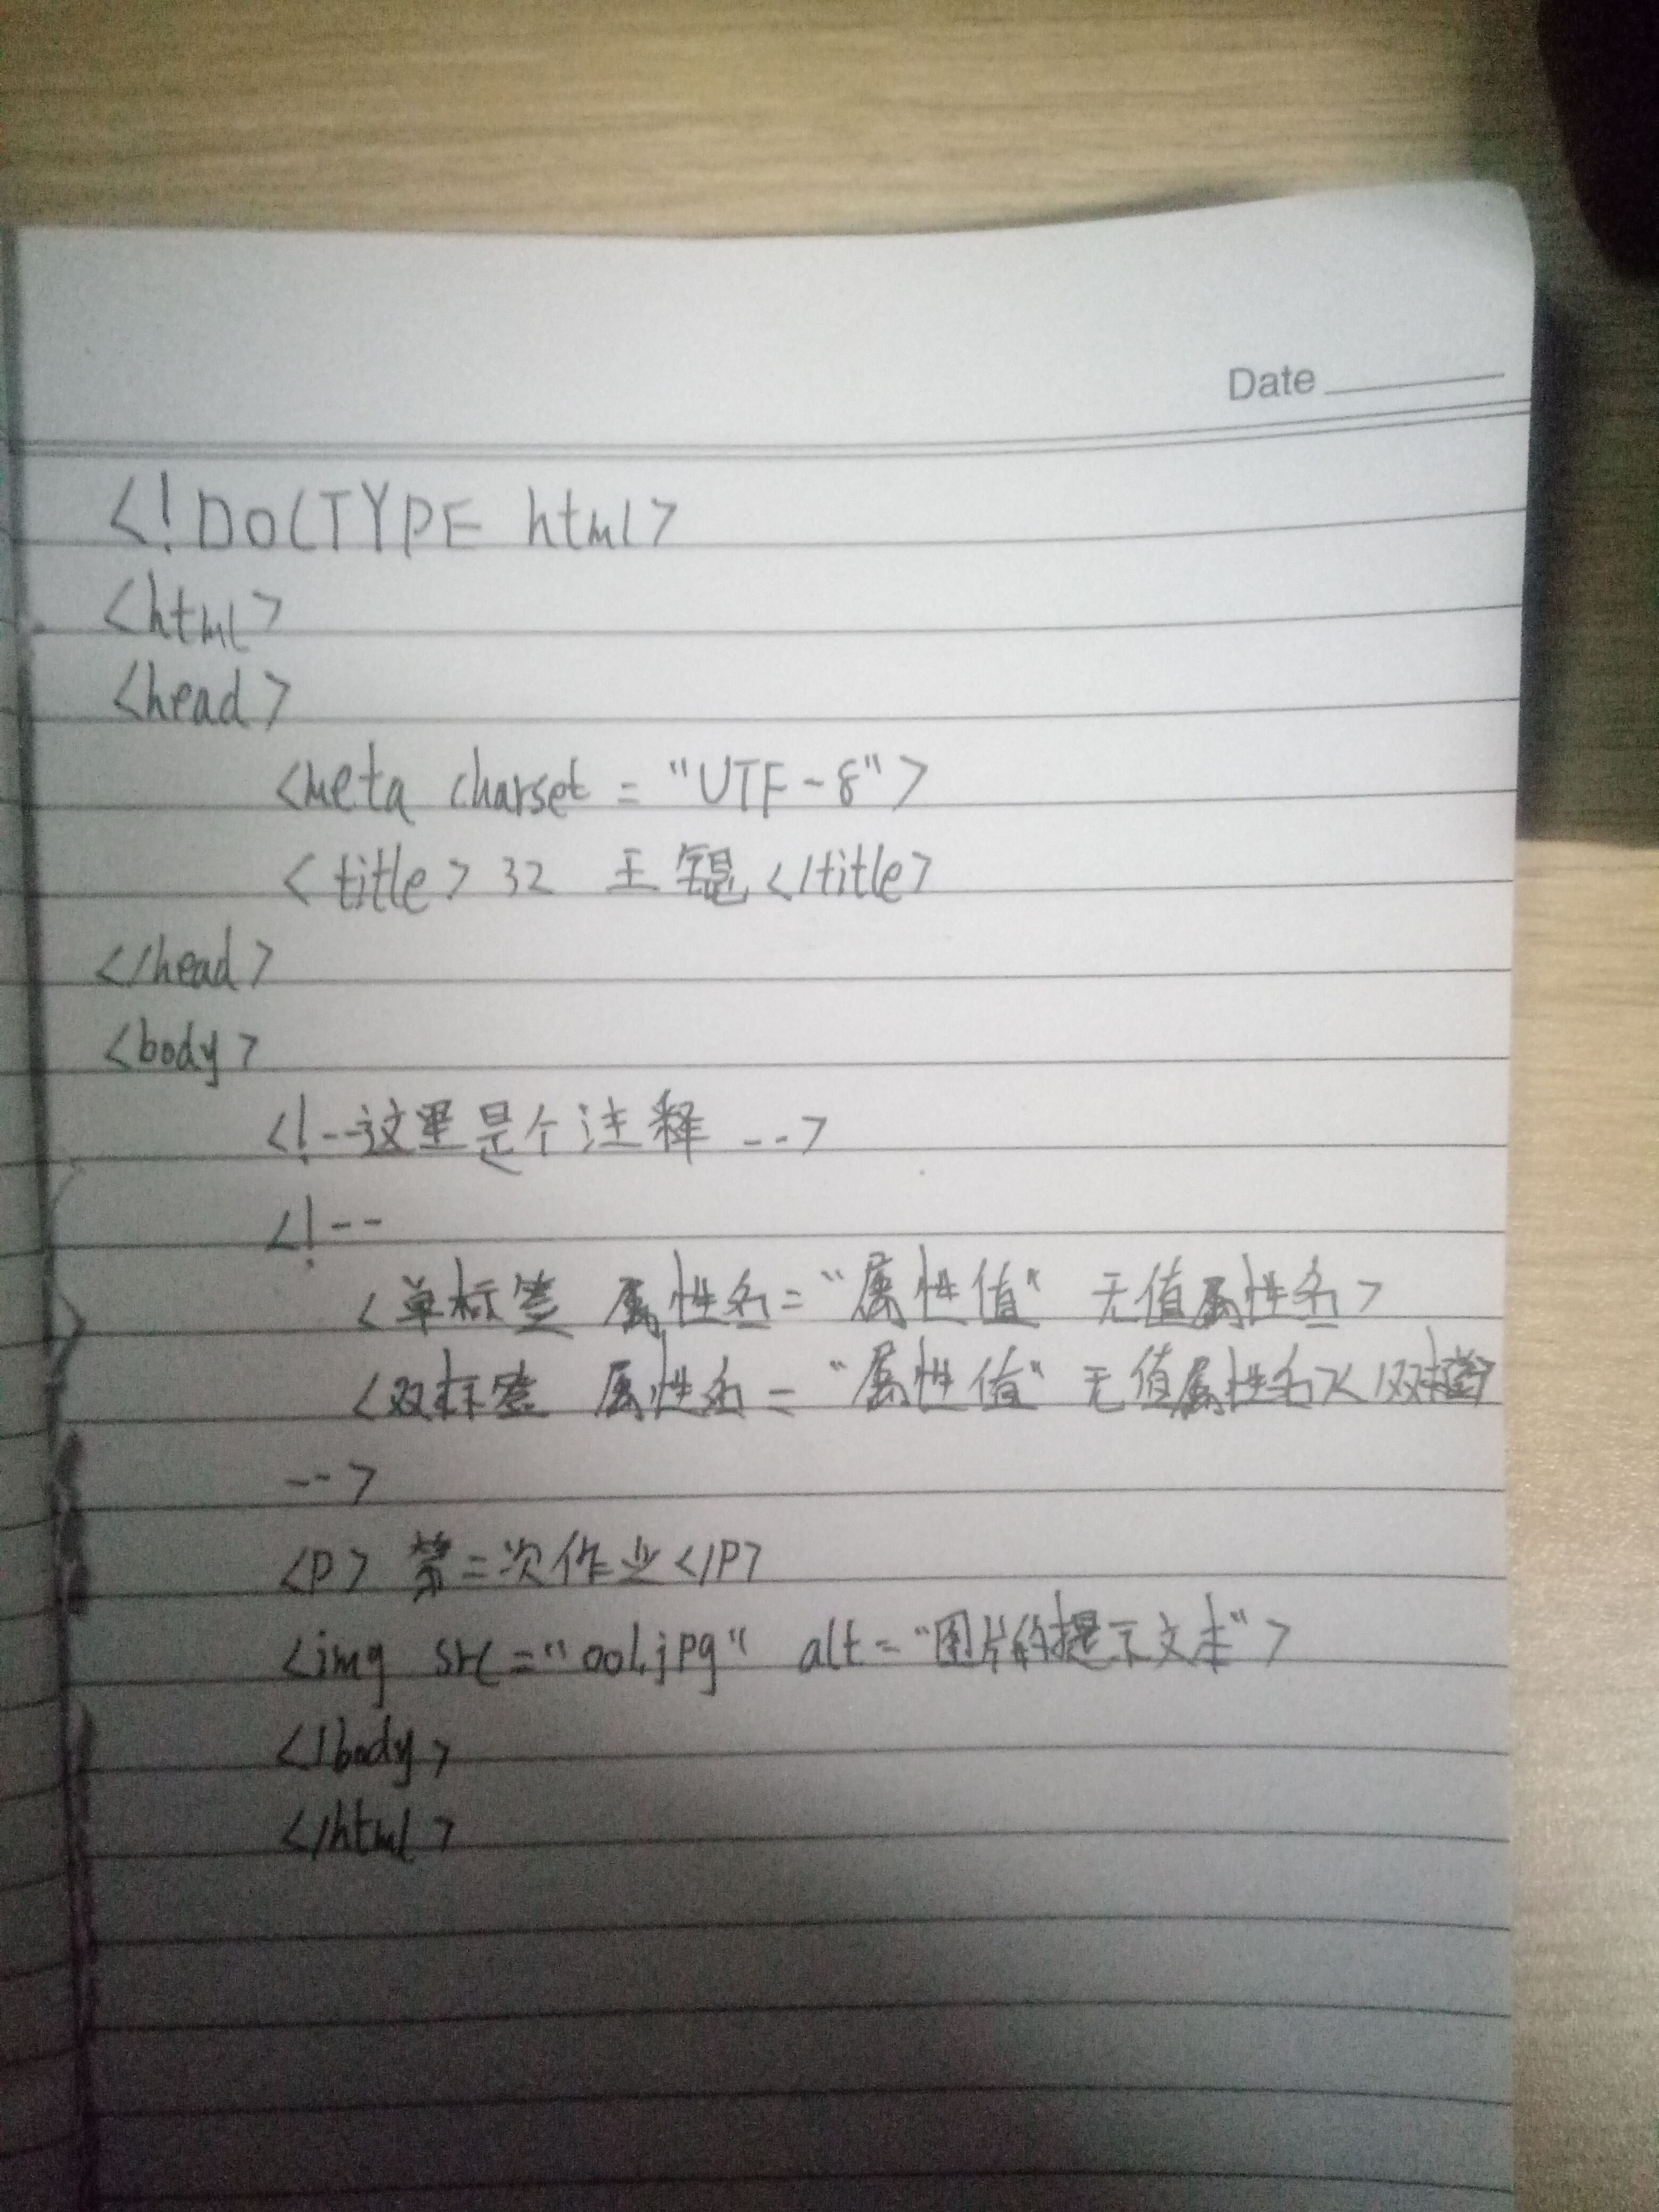 Date
<!DOCTYPE html>
<html>
<head>
<meta charset = "UTF-8">
<title> 32 王锟 </title>
</head>
<body>
<!--这里是个注释 -->
<!--
<单标签 属性名="属性值" 无值属性名>
<双标签 属性名="属性值" 无值属性名></双标签>
-->
<P> 第二次作业</P>
<img src="001.jpg" alt="图片的提示文本">
</body>
</html>